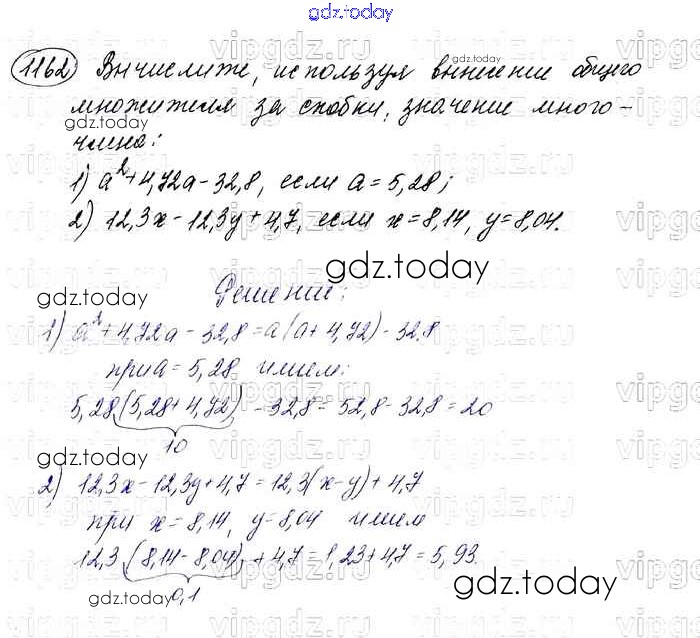 gdz.today
1162 Вычислите, используя вынесение общего
множителя за скобки, значение много-
члена:
1) a²+4,72a-32,8, если a=5,28;
2) 12,3x-12,3y+4,7, если x=8,14, y=8,04.
gdz.today
Решение:
1) a²+4,72a-32,8=a(a+4,72)-32,8
при a=5,28 имеем:
5,28(5,28+4,72)-32,8=52,8-32,8=20
10
2) 12,3x-12,3y+4,7=12,3(x-y)+4,7
при x=8,14, y=8,04 имеем
12,3(8,14-8,04)+4,7=1,23+4,7=5,93.
0,1
gdz.today